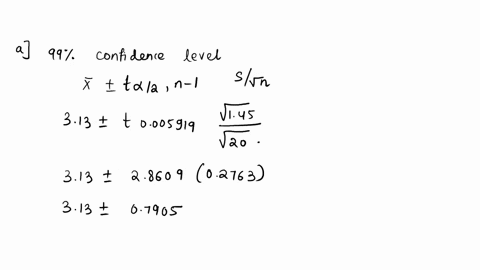 a] 99% confidence level
x̄ ± tα/2, n-1 S/√n
3.13 ± t 0.005919 √1.45/√20.
3.13 ± 2.8609 (0.2763)
3.13 ± 0.7905